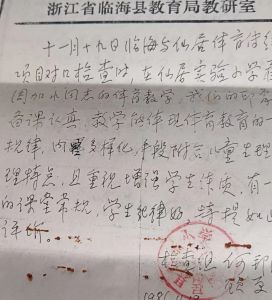 浙江省临海县教育局教研室
十一月十九日临海与仙居体育传统
项目对口检查时，在仙居实验小学看
同志的体育教学，我们的印
备课认真，教学能体现体育教育的一
规律，内容多样化，手段附合儿童生理
理特点，且重视增强学生体质，有一
的课堂常规，学生纪律好，特提如上
评价。
检查组 何
198